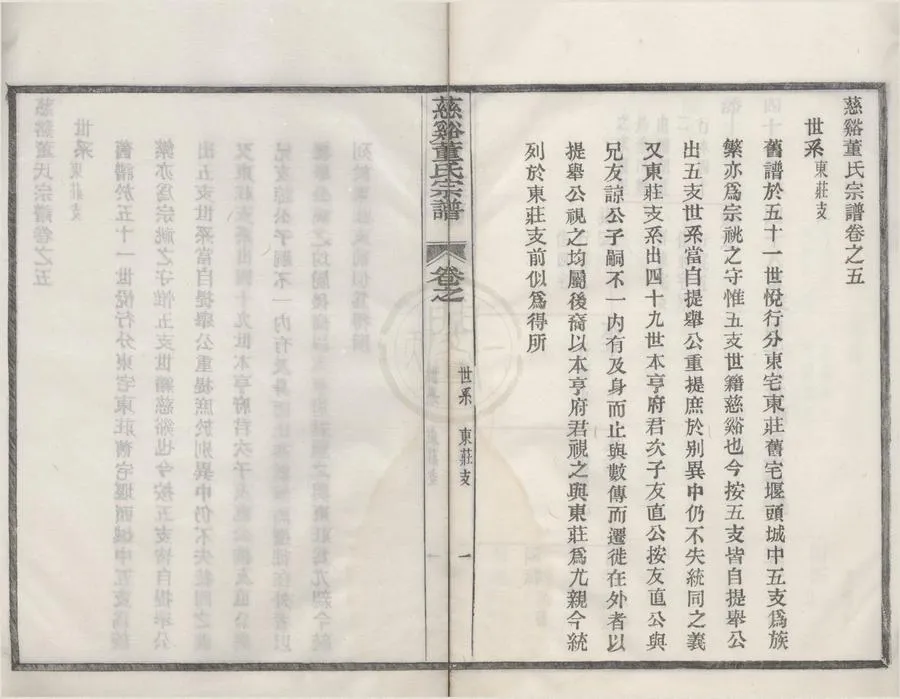 慈谿董氏宗譜卷之五
世系 東莊支
舊譜於五十一世悅行分東宅東莊舊宅堰頭城中五支爲族
繁亦爲宗祧之守惟五支世籍慈谿也今按五支皆自提舉公
出五支世系當自提舉公重提庶於別異中仍不失統同之義
又東莊支系出四十九世本亨府君次子友直公按友直公與
兄友諒公子嗣不一內有及身而止與數傳而遷徙在外者以
提舉公視之均屬後裔以本亨府君視之與東莊爲尤親今統
列於東莊支前似爲得所
慈谿董氏宗譜
卷之
世系 東莊支
一